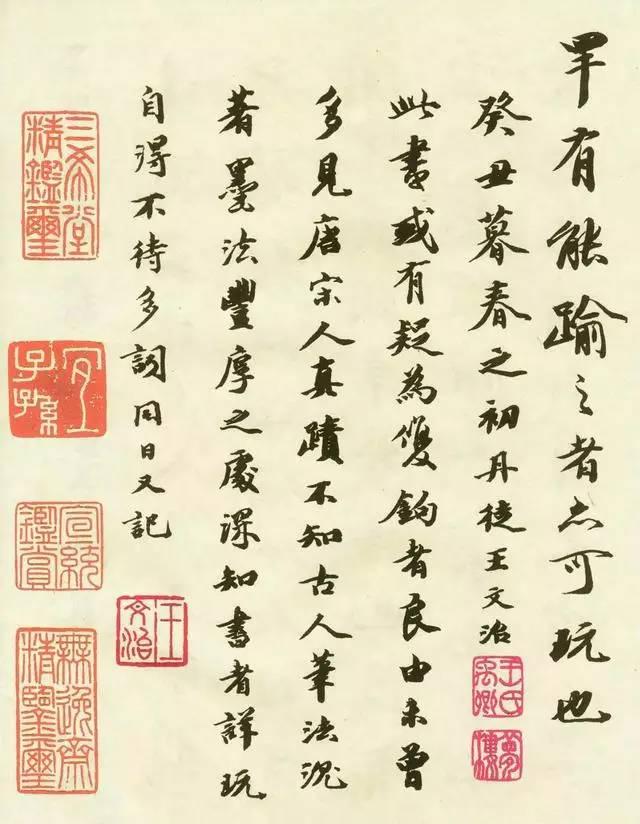 罕有能踰之者真可玩也
癸丑暮春之初丹徒王文治
此書或有疑為雙鉤者良由未曾
多見唐宋人真蹟不知古人筆法泥
著墨法豐厚之處深知書者詳玩
自得不待多詞同日又記
王氏禹卿
夢樓
王文治
三希堂精鑑璽
宜子孫
宣統鑑賞
無逸齋精鑒璽